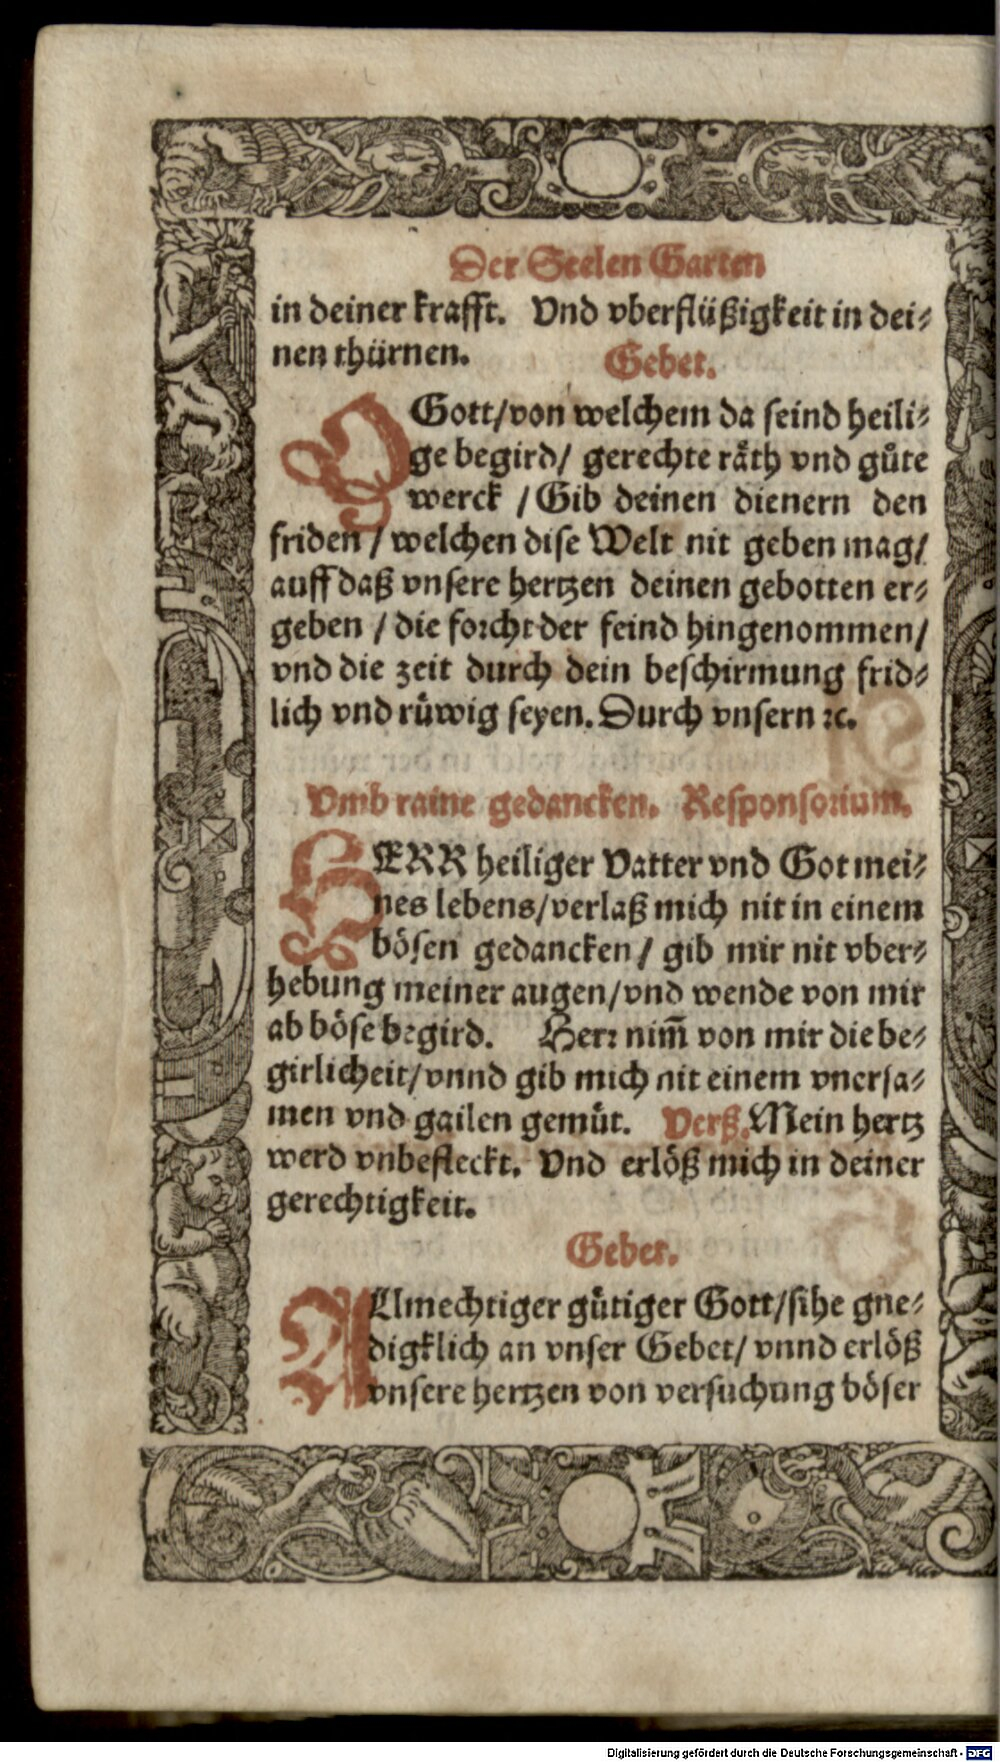 Der Seelen Garten
in deiner krafft. Vnd vberflüßigkeit in dei⸗
nen thürnen. Gebet.
O Gott/von welchem da seind heili⸗
ge begird/ gerechte räth vnd gůte
werck /Gib deinen dienern den
friden / welchen dise Welt nit geben mag/
auff daß vnsere hertzen deinen gebotten er⸗
geben / die forcht der feind hingenommen/
vnd die zeit durch dein beschirmung frid⸗
lich vnd rüwig seyen. Durch vnsern ꝛc.
Vmb raine gedancken. Responsorium.
HERR heiliger Vatter vnd Got mei⸗
nes lebens/verlaß mich nit in einem
bösen gedancken / gib mir nit vber⸗
hebung meiner augen/vnd wende von mir
ab böse begird. Herr nim̄ von mir die be⸗
girlicheit/vnnd gib mich nit einem vnersa⸗
men vnd gailen gemüt. Verß. Mein hertz
werd vnbefleckt. Vnd erlöß mich in deiner
gerechtigkeit.
Gebet.
Allmechtiger gütiger Gott/sihe gne⸗
digklich an vnser Gebet/ vnnd erlöß
vnsere hertzen von versuchung böser
Digitalisierung gefördert durch die Deutsche Forschungsgemeinschaft - DFG